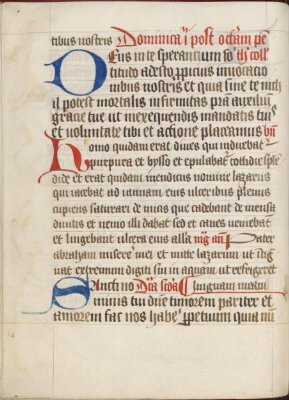 tibus nostris Dominica j post octam pe
Deus in te sperantium fo
titudo adesto ppicius invocatio
nibus nostris et quia sine te nich
il potest mortalis infirmitas pra auxiliū
gracie tue ut in exequendis mandatis tuis
et voluntate tibi et actione placeamus
Homo quidam erat dives qui induebatr
purpura et bysso et epulabatr cottidie sple
dide et erat quidam mendicus nomine lazarus
qui iacebat ad ianuam eius ulceribus plenus
cupiens saturari de micis que cadebant de mensa
divitis et nemo illi dabat sed et canes veniebāt
et lingebant ulcera eius Pater
abraham miserere mei et mitte lazarum ut ītig
uat extremum digiti sui in aquam ut refrigeret
Sancti no Dca scda linguam meam
minis tui dne timorem pariter et
amorem fac nos habe ppetuum quia nū